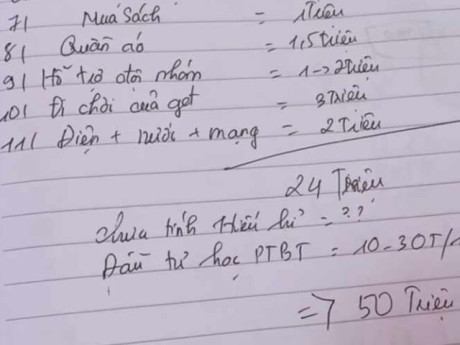 7| Mua sách = 1 Triệu
8| Quần áo = 1,5 triệu
9| Hỗ trợ đội nhóm = 1->2 triệu
10| Đi chơi cuả gđ = 3 Triệu
11| Điện + nước + mạng = 2 Triệu
24 Triệu
chưa tính Hiếu hỉ = ??
Đầu tư học PTBT = 10-30T/
=> 50 Triệu